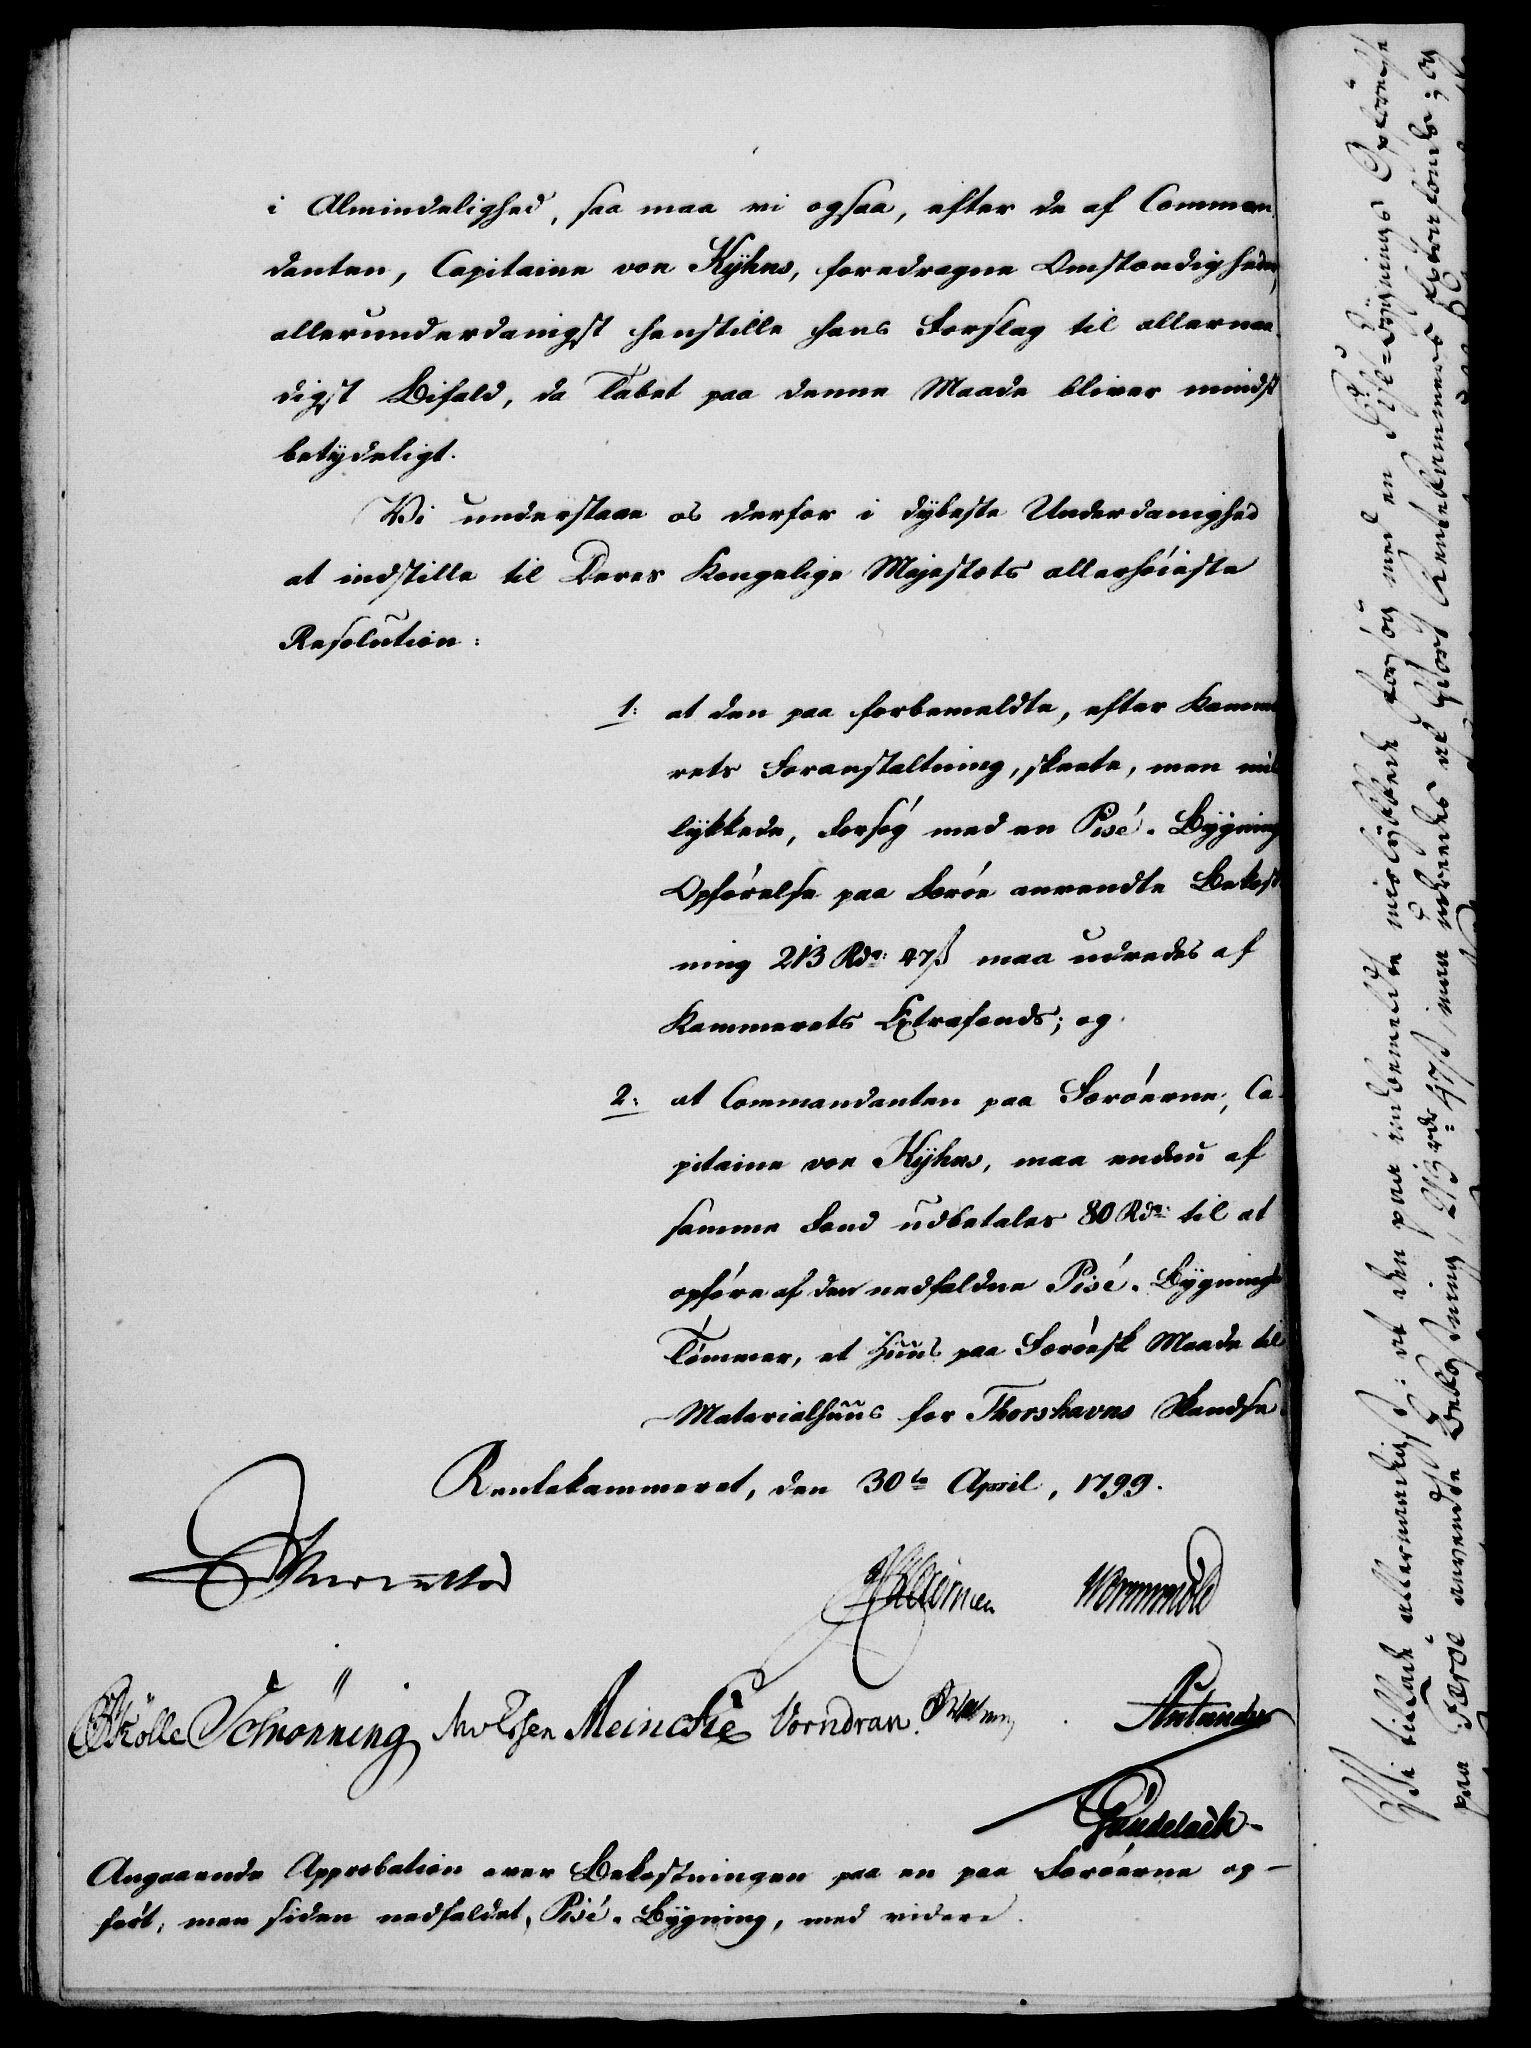 i Almindelighed, saa maa vi ogsaa, efter de af Comman-
danten, Capitaine von Kÿhns, foredragne Omstændigheder,
allerunderdanigst henstille hans Forslag til allernaa-
digst Bifald, da Tabet paa denne Maade bliver mindst
betÿdeligt.
Vi understaae os derfor i dÿbeste Underdanighed
at indstille til Deres Kongelige Majestæts allerhöieste
Resolution:
1: at den paa forbemeldte, efter Kamme
rets Foranstaltning, skeete, men mis
lÿkkede, Forsög med en Pisé-Bÿgnings
Opförelse paa Færöe anvendte Bekost
ning 213 Rdr: 47 ß maa udredes af
Kammerets Extrafonds; og
2: at Commandanten paa Færöerne, Ca-
pitaine von Kÿhns, maa endnu af
samme Fond udbetales 80 Rdr: til at
opföre af den nedfaldne Pisé-Bÿgnings
Tömmer, et Huus paa Færöesk Maade til
Materialhuus for Thorshavns Skandse.
Rentekammeret, den 30te April, 1799.
Wormskiold
Kölle Schrönning Meincke Vorndran.
Gundelach
Angaaende Approbation over Bekostningen paa en paa Færöerne op-
fört, men siden nedfaldet, Pisé-Bÿgning, med videre.
Vi tillade allernaadigst: at den paa indbemeldte mislÿkkede Forsög med en Pisé-Bÿgnings Opförelse
paa Færöe anvendte Bekostning, 213 rdr 47 ß, maa udredes af Vort Rentekammers Extrafonds; og